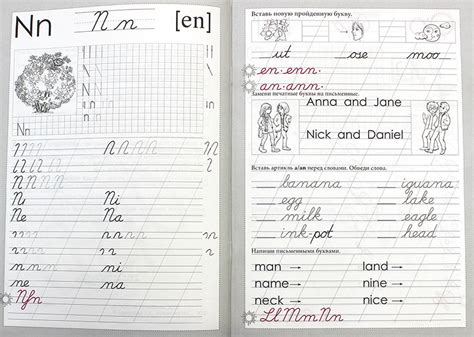 Nn N n [en]
Nn
Ni Ni
Ne Na
n n n n n
n n n ni
ne na
Nn
Вставь новую пройденную букву.
__ut __ose moo__
en·enn·
an·ann·
Замени печатные буквы на письменные.
Anna and Jane
Nick and Daniel
Вставь артикль a/an перед словами. Обведи слова.
____ banana ____ iguana
____ egg ____ lake
____ milk ____ eagle
____ ink-pot ____ head
Напиши письменными буквами.
man → land →
name → nine →
neck → nice →
Ll Mm Nn